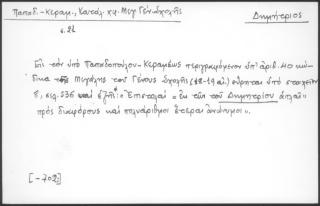 Παπαδ.-Κεραμ., Καταλ. χφ. Μεγ. Γεν. Σχολῆς
Δημήτριος
Εἰς τὸν ὑπὸ Παπαδοπούλου-Κεραμέως περιγραφόμενον ὑπ' ἀριθ. 40 κώ-
δικα τῆς Μεγάλης τοῦ Γένους Σχολῆς (18-19 αἰ.) εὕρηται ὑπὸ στοιχεῖον
σελ. 536 καὶ ἑξῆς: « Ἐπιστολαὶ » ἐκ τῶν τοῦ Δημητρίου
πρὸς διαφόρους καὶ πολυάριθμοι ἕτεραι ἀνώνυμοι».
[-702]